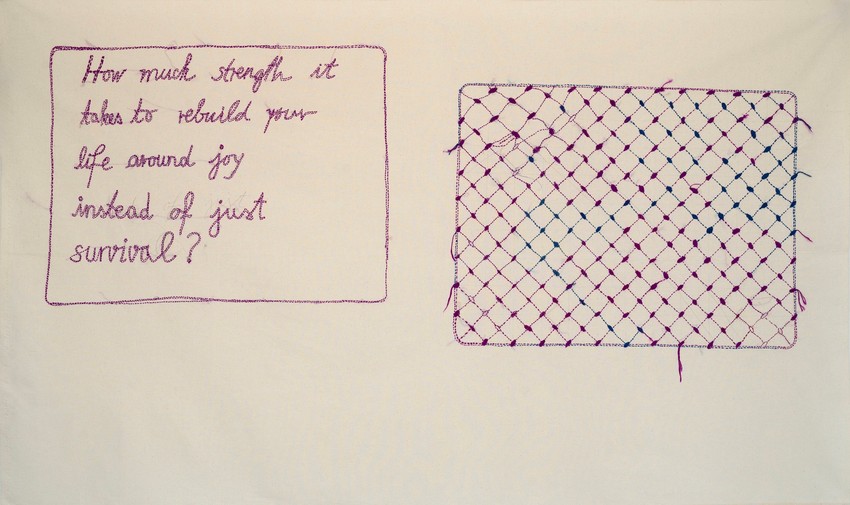 How much strength it
takes to rebuild your
life around joy
instead of just
survival?